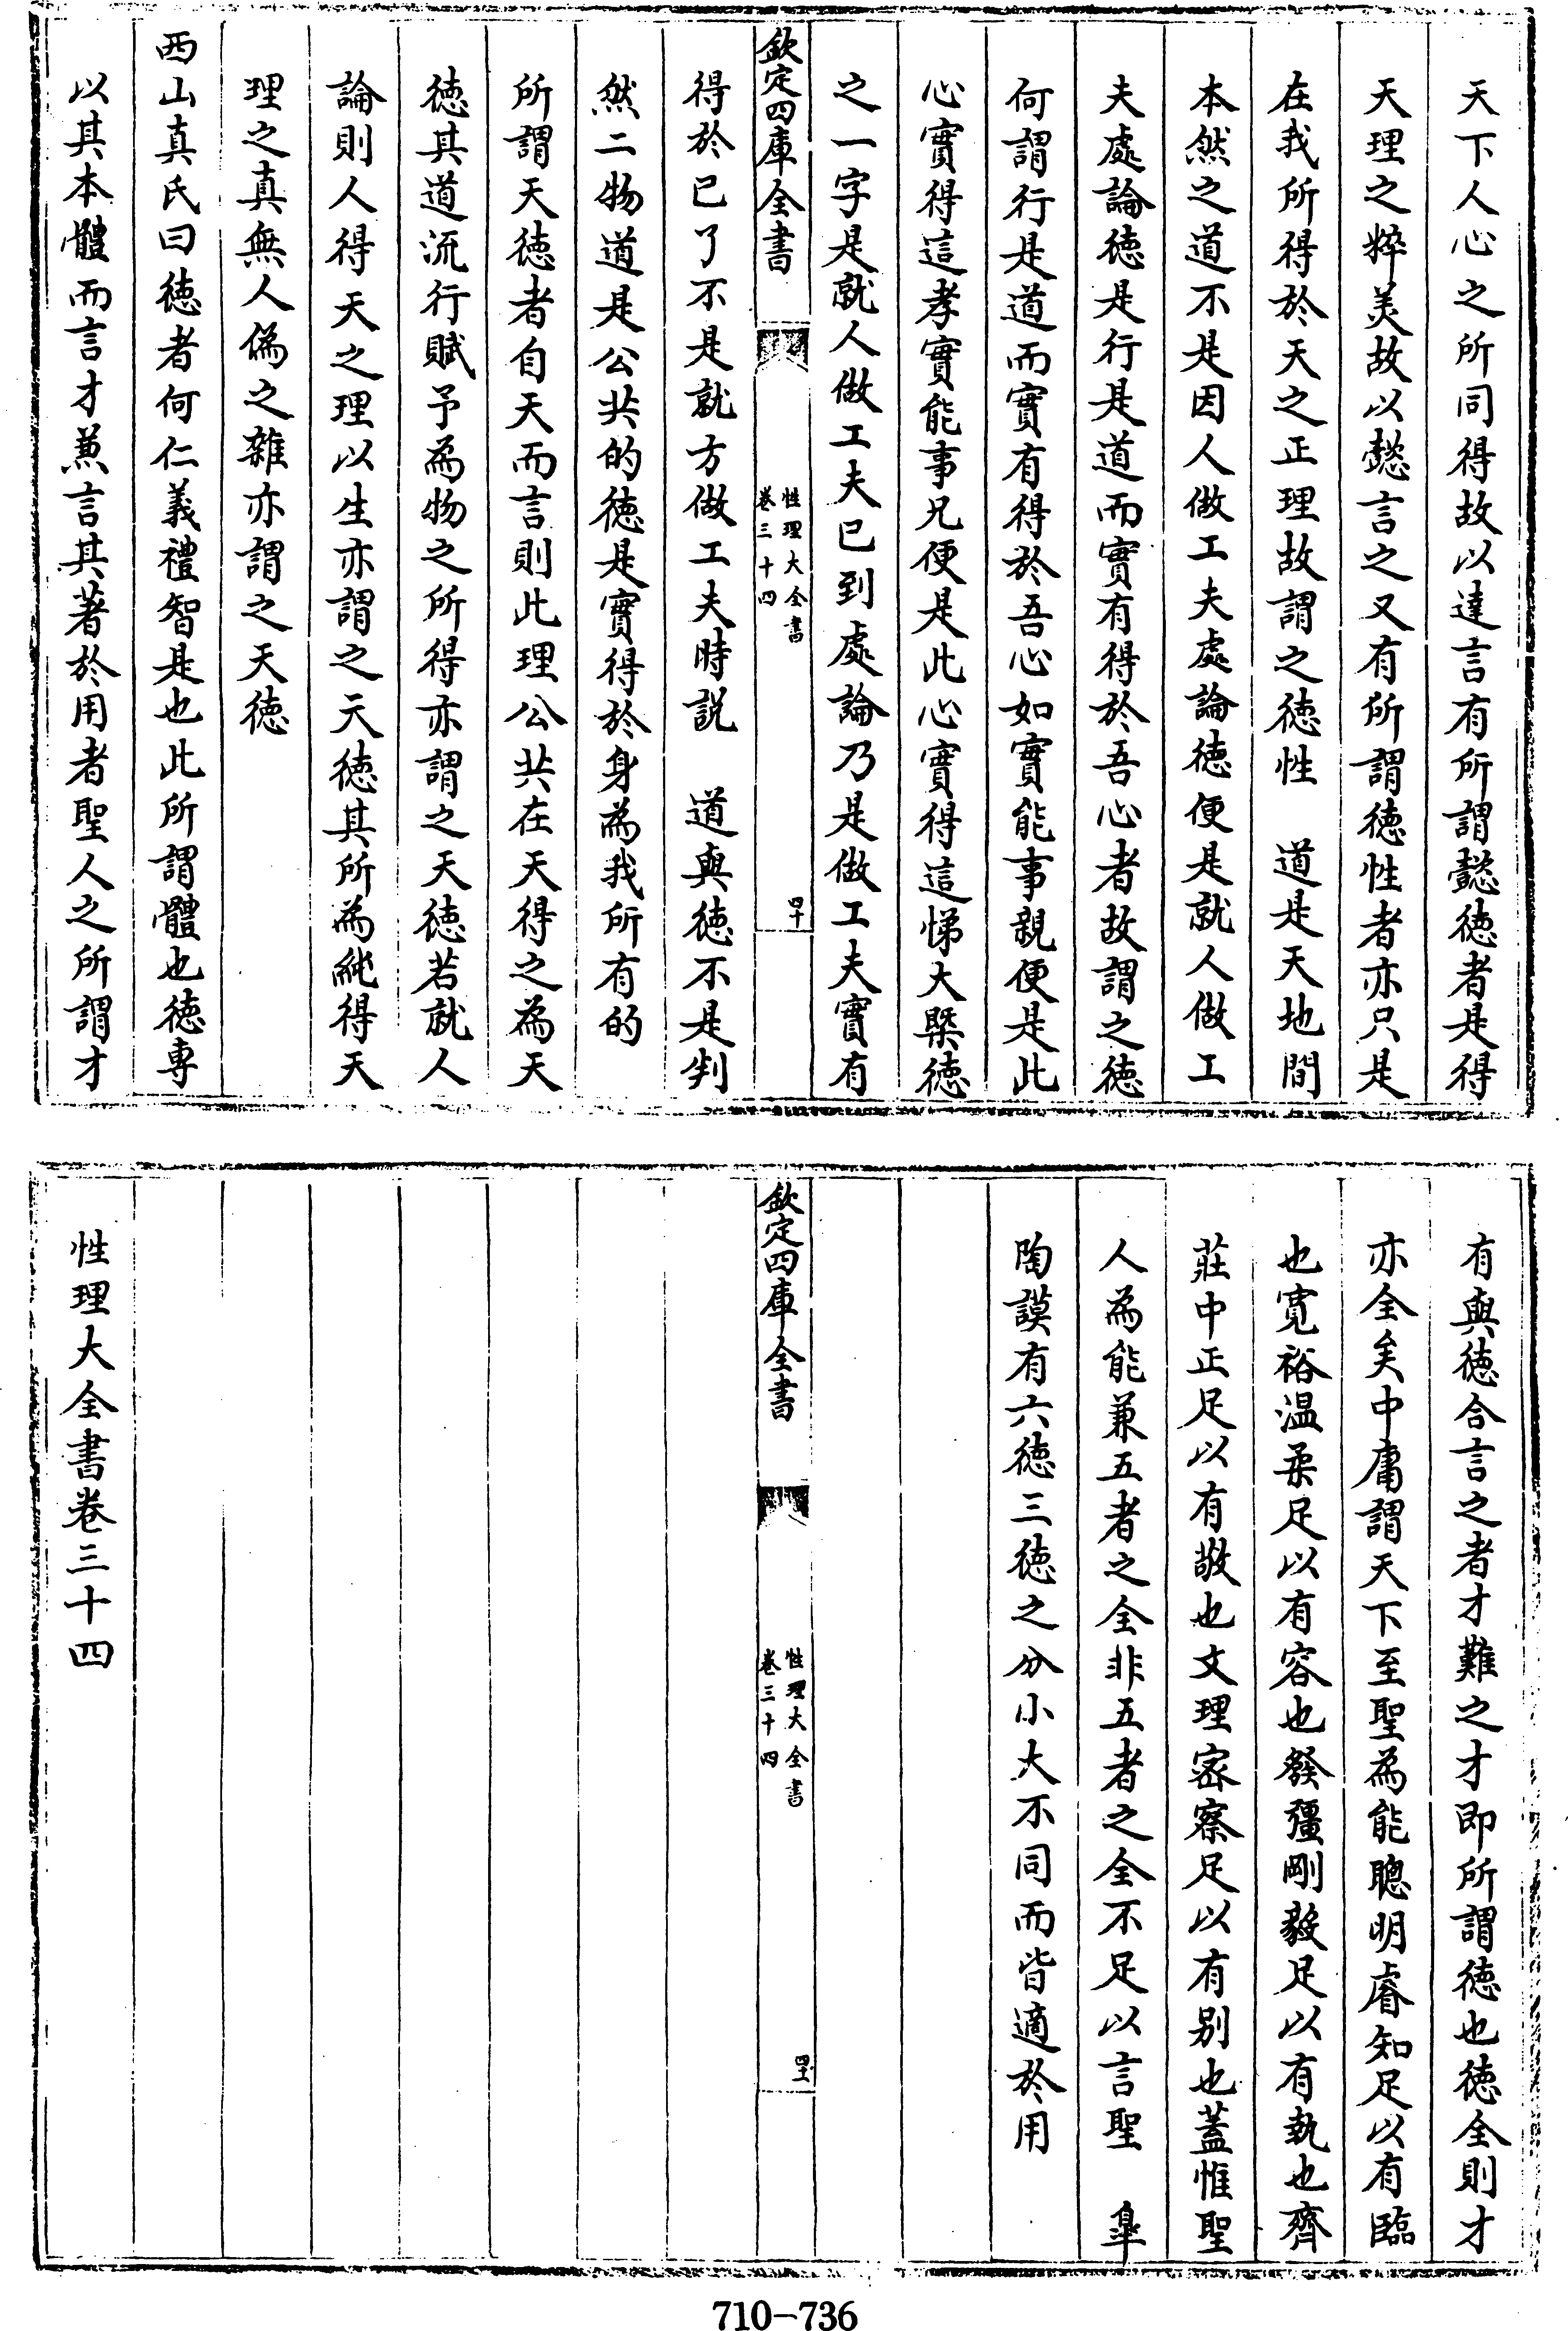 天下人心之所同得故以達言有所謂懿徳者是得
天理之粹美故以懿言之又有所謂徳性者亦只是
在我所得於天之正理故謂之徳性　道是天地間
本然之道不是因人做工夫處論徳便是就人做工
夫處論徳是行是道而實有得於吾心者故謂之徳
何謂行是道而實有得於吾心如實能事親便是此
心實得這孝實能事兄便是此心實得這悌大槩徳
之一字是就人做工夫已到處論乃是做工夫實有
欽定四庫全書
性理大全書
卷三十四
四十
得於已了不是就方做工夫時説　道與徳不是判
然二物道是公共的徳是實得於身為我所有的
所謂天徳者自天而言則此理公共在天得之為天
徳其道流行賦予為物之所得亦謂之天徳若就人
論則人得天之理以生亦謂之天徳其所為純得天
理之真無人偽之雜亦謂之天徳
西山真氏曰徳者何仁義禮智是也此所謂體也徳專
以其本體而言才兼言其著於用者聖人之所謂才
有與徳合言之者才難之才即所謂徳也徳全則才
亦全矣中庸謂天下至聖為能聰明睿知足以有臨
也寛裕温柔足以有容也發彊剛毅足以有執也齊
莊中正足以有敬也文理宻察足以有别也蓋惟聖
人為能兼五者之全非五者之全不足以言聖　臯
陶謨有六徳三徳之分小大不同而皆適於用
欽定四庫全書
性理大全書
卷三十四
四十一
性理大全書卷三十四
710-736